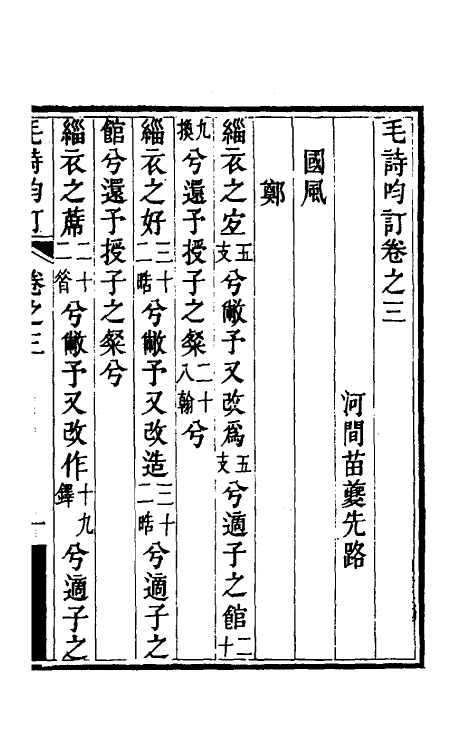 毛詩呁訂卷之三
河間苗夔先路
國風
鄭
緇衣之宐五支兮敝予又改爲五支兮適子之館二十
九換兮還予授子之粲二十八翰兮
緇衣之好三十二晧兮敝予又改造三十二晧兮適子之
館兮還予授子之粲兮
緇衣之蓆二十二㫺兮敝予又改作十九鐸兮適子之
毛詩呁訂 卷之三 一